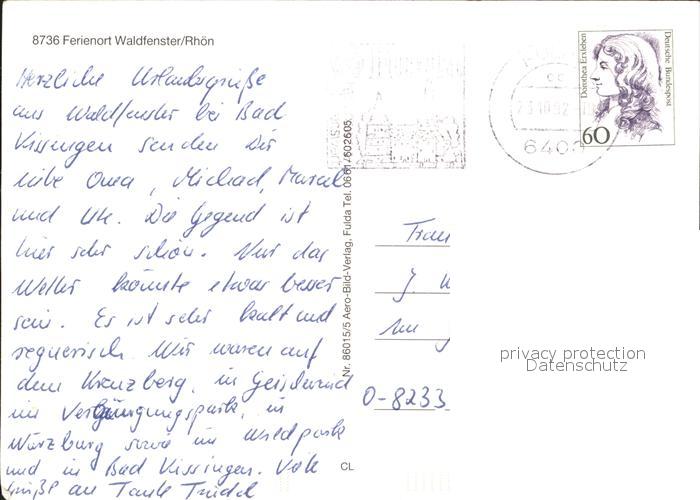 8736 Ferienort Waldfenster/Rhön
Herzliche Urlaubsgrüße
aus Waldfenster bei Bad
Kissingen senden Dir
liebe Oma, Michael, Marcel
und Ute. Die Gegend ist
hier sehr schön. Nur das
Wetter könnte etwas besser
sein. Es ist sehr kalt und
regnerisch. Wir waren auf
dem Kreuzberg, in Geiselwind
im Vergnügungspark, in
Würzburg sowie im Wildpark
und in Bad Kissingen. Viele
Grüße an Tante Trudel
Nr. 86015/5 Aero-Bild-Verlag, Fulda Tel. 0661/602605.
CL
Dorothea Erxleben
Deutsche Bundespost
60
23.10.92
6400
Frau
J.
O-8233
privacy protection
Datenschutz